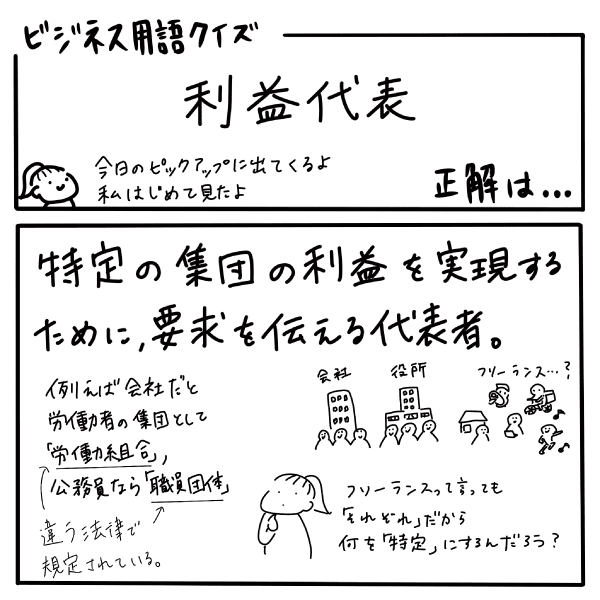 ビジネス用語クイズ
利益代表
今日のピックアップに出てくるよ
私はじめて見たよ
正解は...
特定の集団の利益を実現する
ために,要求を伝える代表者。
例えば会社だと
労働者の集団として
「労働組合」,
公務員なら「職員団体」
違う法律で
規定されている。
会社
役所
フリーランス…?
フリーランスって言っても
「それぞれ」だから
何を「特定」にするんだろう?